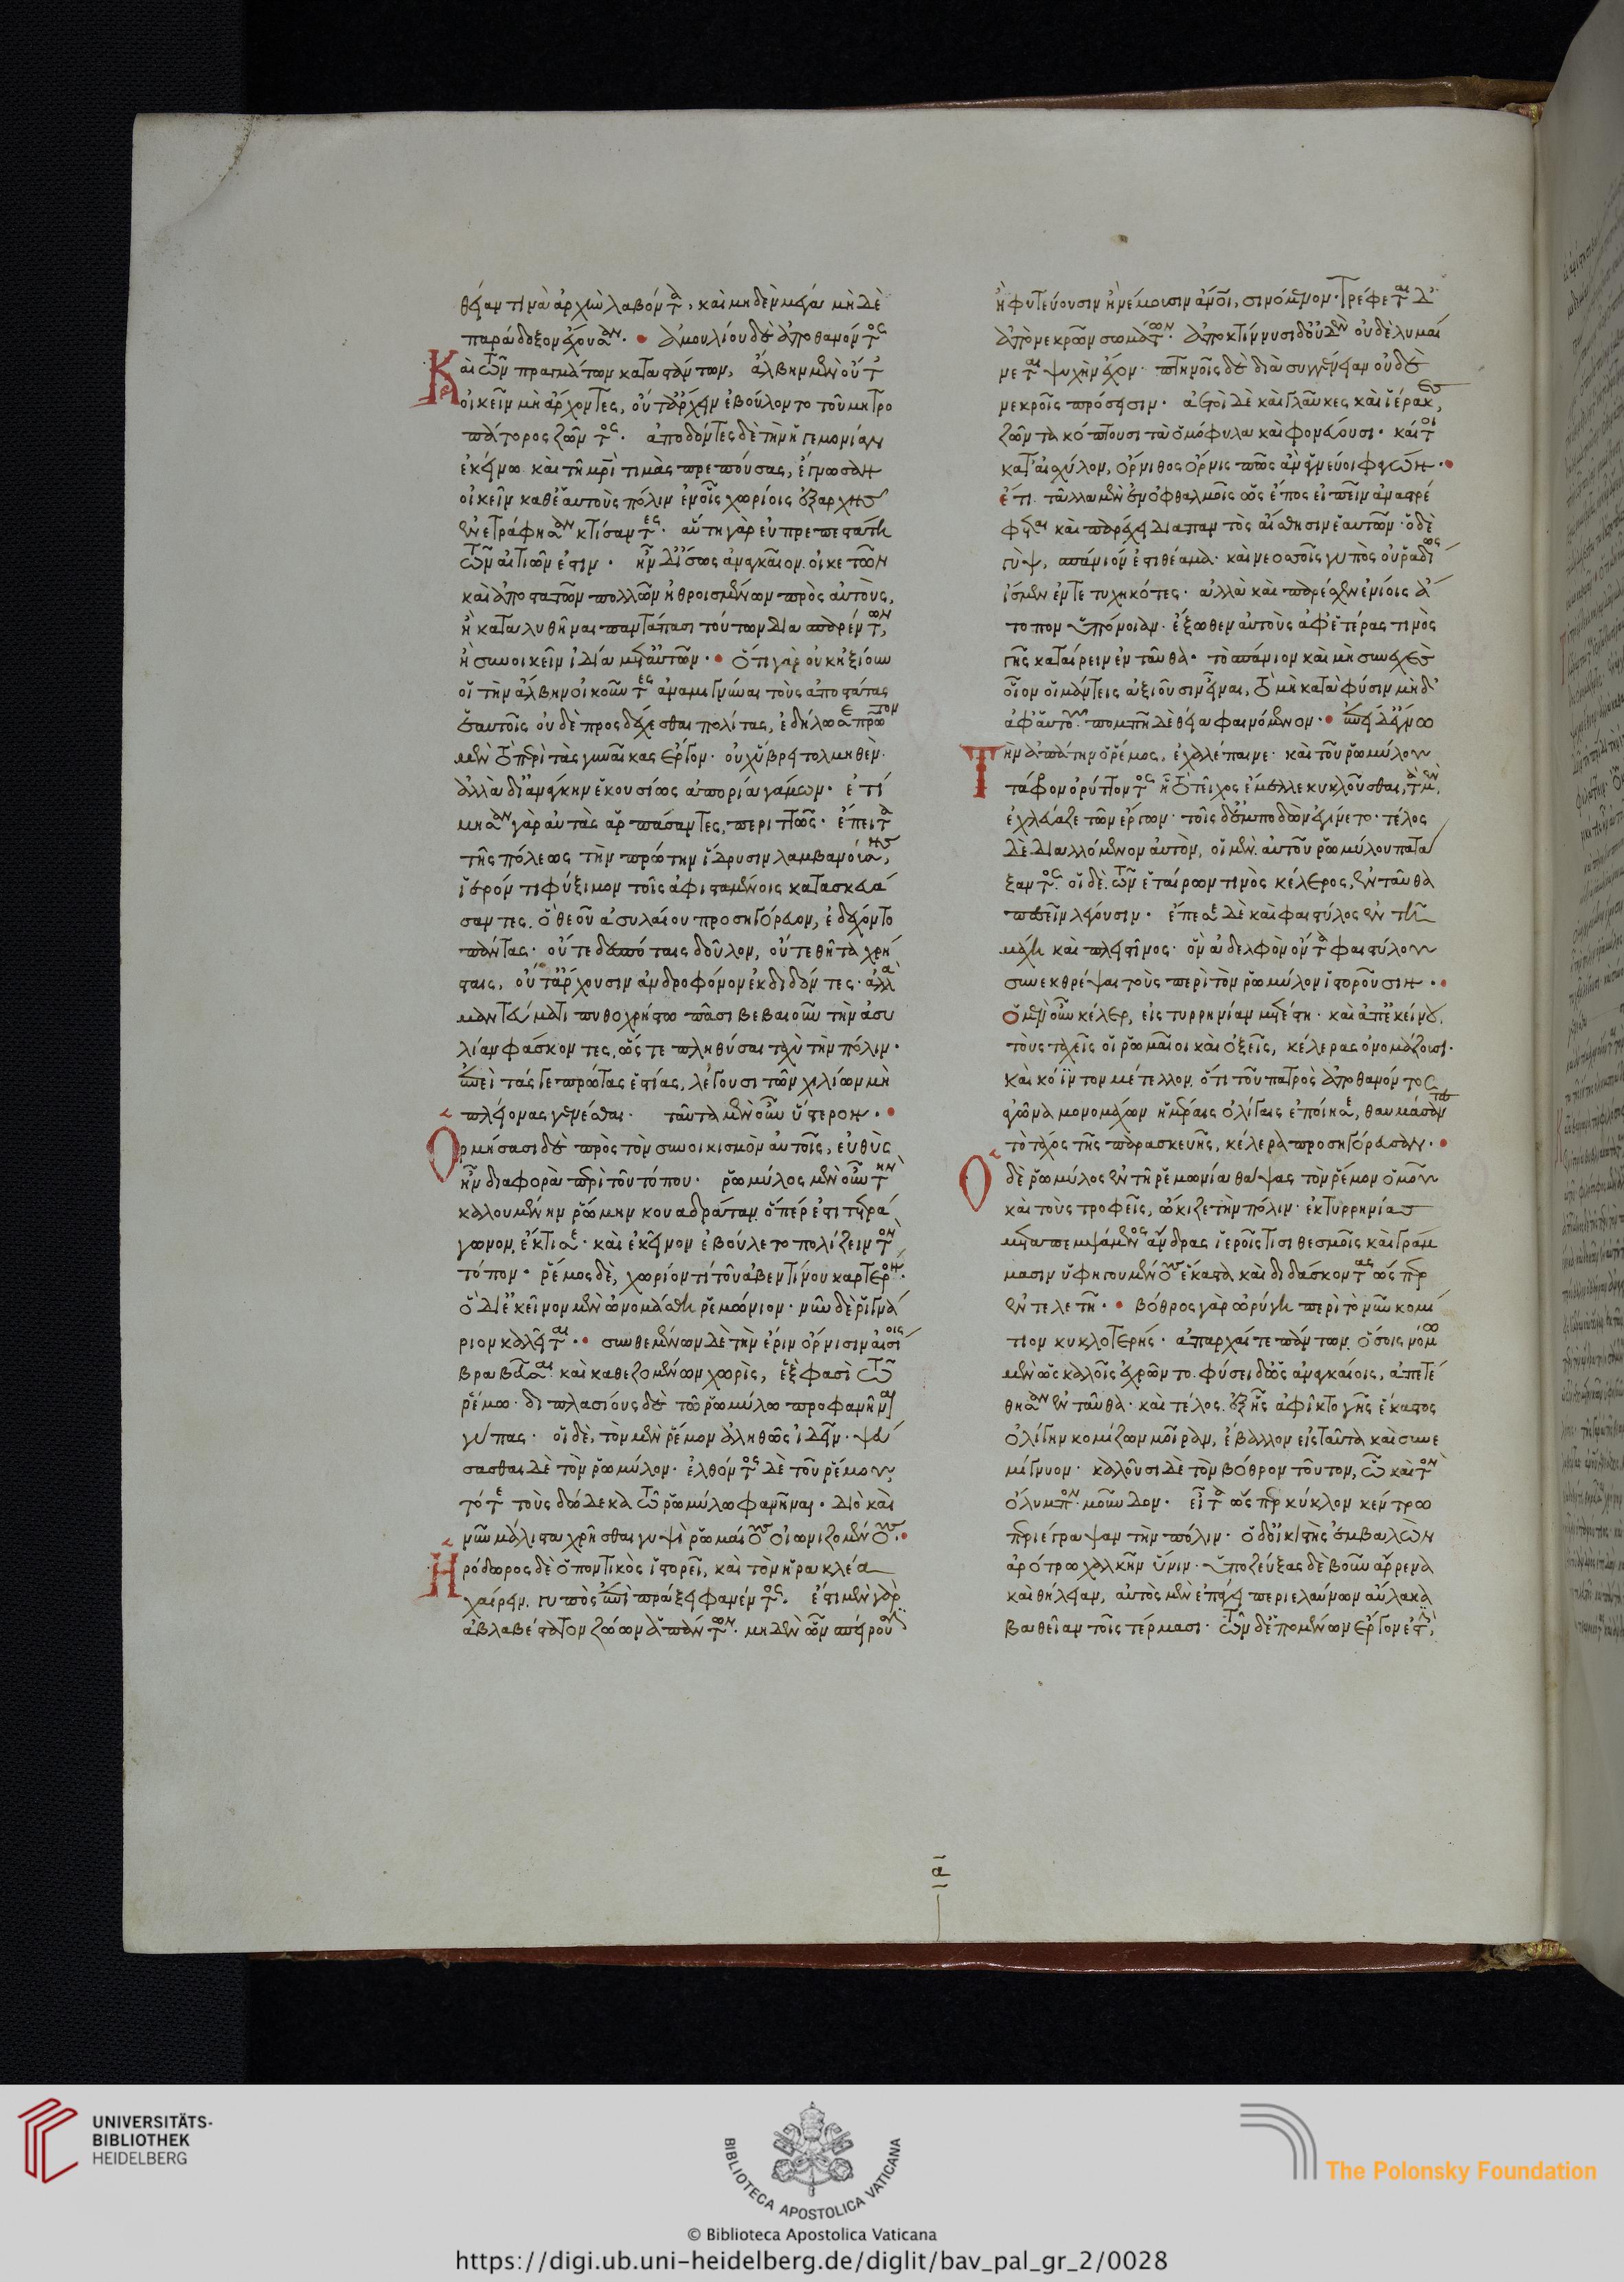 θείαν τινὰ ἀρχὴν λαβόντα, καὶ μηδὲν μέγα μηδὲ
παράδοξον ἔχουσαν. ἀμουλίου δὲ ἀποθανόντος
Καὶ τῶν πραγμάτων καταστάντων, ἄλβην μὲν οὔτ
οἰκεῖν μὴ ἄρχοντες, οὔτ' ἄρχειν ἐβούλοντο τοῦ μητρο
πάτορος ζῶντος. ἀποδόντες δὲ τὴν ἡγεμονίαν
ἐκείνω καὶ τῆ μητρὶ τιμὰς πρεπούσας, ἔγνωσαν
οἰκεῖν καθ' ἑαυτοὺς πόλιν ἐν οἷς χωρίοις ἐξαρχῆς
ἐνετράφησαν κτίσαντες. αὕτη γὰρ εὐπρεπεστάτη
τῶν αἰτιῶν ἐστιν. ἦν δ' ἴσως ἀναγκαῖον. οἰκετῶν
καὶ ἀποστατῶν πολλῶν ἠθροισμένων πρὸς αὐτοὺς,
ἢ καταλυθῆναι παντάπασι τούτων διασπαρέντων,
ἢ συνοικεῖν ἰδία μετ' αὐτῶν. ὅτι γὰρ οὐκ ἠξίουν
οἱ τὴν ἄλβην οἰκοῦντες ἀναμιγνύναι τοὺς ἀποστάτας
ἑαυτοῖς οὐδὲ προσδέχεσθαι πολίτας, ἐδήλωσε πρῶτον
μὲν τὸ περὶ τὰς γυναῖκας ἔργον. οὐχ ὕβρει τολμηθὲν.
ἀλλὰ δι' ἀνάγκην ἑκουσίως ἀπορία γάμων. ἐτί
μησαν γὰρ αὐτὰς ἁρπάσαντες, περιττῶς. ἔπειτα
τῆς πόλεως τὴν πρώτην ἵδρυσιν λαμβανούσης,
ἱερόν τι φύξιμον τοῖς ἀφισταμένοις κατασκευά
σαντες. ὃ θεοῦ ἀσυλαίου προσηγόρευον, ἐδέχοντο
πάντας. οὔτε δεσπόταις δοῦλον, οὔτε θῆτα χρή
σταις, οὔτ' ἄρχουσιν ἀνδροφόνον ἐκδιδόντες. ἀλλὰ
μαντεύματι πυθοχρήστω πᾶσι βεβαιοῦν τὴν ἀσυ
λίαν φάσκοντες, ὥς τε πληθύσαι ταχὺ τὴν πόλιν.
ἐπεὶ τάς γε πρώτας ἑστίας, λέγουσι τῶν χιλίων μὴ
πλείονας γενέσθαι. ταῦτα μὲν οὖν ὕστερον.
Ὁρμήσασι δὲ πρὸς τὸν συνοικισμὸν αὐτοῖς, εὐθὺς
ἦν διαφορὰ περὶ τοῦ τόπου. ῥωμύλος μὲν οὖν τὴν
καλουμένην ῥώμην κουαδράταν. ὅπερ ἐστὶ τετρά
γωνον, ἔκτισε. καὶ ἐκεῖνον ἐβούλετο πολίζειν τὸν
τόπον. ῥέμος δὲ, χωρίον τί τοῦ ἀβεντίνου καρτερόν.
ὃ δι' ἐκεῖνον μὲν ὠνομάσθη ῥεμώνιον. νῦν δὲ ῥιγνά
ριον καλεῖται. συνθεμένων δὲ τὴν ἔριν ὄρνισιν αἰσίοις
βραβεῦσαι καὶ καθεζομένων χωρὶς, ἓξ φασὶ τῶ
ῥέμω. διπλασίους δὲ τῶ ῥωμύλω προφανῆναι
γύπας. οἱ δὲ, τὸν μὲν ῥέμον ἀληθῶς ἰδεῖν. ψεύ
σασθαι δὲ τὸν ῥωμύλον. ἐλθόντος δὲ τοῦ ῥέμου,
τότε τοὺς δώδεκα τῶ ῥωμύλω φανῆναι. διὸ καὶ
νῦν μάλιστα χρῆσθαι γυψὶ ῥωμαίους οἰωνιζομένους.
Ἡρόδωρος δὲ ὁ ποντικὸς ἱστορεῖ, καὶ τὸν ἡρακλέα
χαίρειν. γυπὸς ἐπὶ πράξει φανέντος. ἔστι μὲν γὰρ
ἀβλαβέστατον ζώων ἁπάντων. μηδὲν ὧν σπείρουσιν
ἢ φυτεύουσιν ἢ νέμουσιν ἄνθρωποι, σινόμενον. τρέφεται δ'
ἀπὸ νεκρῶν σωμάτων. ἀποκτίννυσι δ' οὐδὲν οὐδὲ λυμαί
νεται ψυχὴν ἔχον. πτηνοῖς δὲ διὰ συγγένειαν οὐδὲ
νεκροῖς πρόσεισιν. ἀετοὶ δὲ καὶ γλαῦκες καὶ ἱέρακες,
ζῶντα κόπτουσι τὰ ὁμόφυλα καὶ φονεύουσι. καίτοι
κατ' αἰσχύλον, ὄρνιθος ὄρνις πῶς ἂν ἁγνεύοι φαγών.
ἔτι τἆλλα μὲν ἐν ὀφθαλμοῖς ὡς ἔπος εἰπεῖν ἀναστρέ
φεται καὶ παρέχει διαπαντὸς αἴσθησιν ἑαυτῶν. ὁ δὲ
γὺψ, σπάνιόν ἐστι θέαμα. καὶ νεοσσοῖς γυπὸς οὐ ῥαδίως
ἴσμεν ἐντετυχηκότες. ἀλλὰ καὶ παρέσχεν ἐνίοις ἄ
τοπον ὑπόνοιαν. ἔξωθεν αὐτοὺς ἀφ' ἑτέρας τινὸς
γῆς καταίρειν ἐνταῦθα. τὸ σπάνιον καὶ μὴ συνεχὲς
οἷον οἱ μάντεις ἀξιοῦσιν εἶναι, τὸ μὴ κατὰ φύσιν μηδ'
ἀφ' αὑτοῦ. πομπῆ δὲ θεία φαινόμενον. ἐπεὶ δ' ἔγνω
Τὴν ἀπάτην ὁ ῥέμος, ἐχαλέπαινε. καὶ τοῦ ῥωμύλου
τάφρον ὀρύττοντος ἧ τὸ τεῖχος ἔμελλε κυκλοῦσθαι, τὰ μὲν
ἐχλεύαζε τῶν ἔργων. τοῖς δ' ἐμποδὼν ἐγίνετο. τέλος
δὲ διαλλόμενον αὐτὸν, οἱ μὲν. αὐτοῦ ῥωμύλου πατά
ξαντος. οἱ δὲ. τῶν ἑταίρων τινὸς κέλερος, ἐνταῦθα
πεσεῖν λέγουσιν. ἔπεσε δὲ καὶ φαιστύλος ἐν τῆ
μάχη καὶ πλειστῖνος. ὃν ἀδελφὸν ὄντα φαιστύλου
συνεκθρέψαι τοὺς περὶ τὸν ῥωμύλον ἱστοροῦσιν.
ὁ μὲν οὖν κέλερ, εἰς τυρρηνίαν μετέστη. καὶ ἀπ' ἐκείνου,
τοὺς ταχεῖς οἱ ῥωμαῖοι καὶ ὀξεῖς, κέλερας ὀνομάζουσι.
καὶ κόϊντον μέτελλον. ὅτι τοῦ πατρὸς ἀποθανόντος
ἀγῶνα μονομάχων ἡμέραις ὀλίγαις ἐποίησε, θαυμάσαντες
τὸ τάχος τῆς παρασκευῆς, κέλερα προσηγόρευσαν.
Ὁ δὲ ῥωμύλος ἐν τῆ ῥεμωνία θάψας τὸν ῥέμον ὁμοῦ
καὶ τοὺς τροφεῖς, ὤκιζε τὴν πόλιν. ἐκ τυρρηνίας
μεταπεμψάμενος ἄνδρας ἱεροῖς τισι θεσμοῖς καὶ γράμ
μασιν ὑφηγουμένους ἕκαστα καὶ διδάσκοντας ὥσπερ
ἐν τελετῆ. βόθρος γὰρ ὠρύγη περὶ τὸ νῦν κομί
τιον κυκλοτερής. ἀπαρχαί τε πάντων. ὅσοις νόμω
μὲν ὡς καλοῖς ἐχρῶντο. φύσει δ' ὡς ἀναγκαίοις, ἀπετέ
θησαν ἐνταῦθα. καὶ τέλος. ἐξ ἧς ἀφῖκτο γῆς ἕκαστος
ὀλίγην κομίζων μοῖραν, ἔβαλλον εἰς ταῦτα καὶ συνε
μίγνυον. καλοῦσι δὲ τὸν βόθρον τοῦτον, ὧ καὶ τὸν
ὄλυμπον. μοῦνδον. εἶτα ὥσπερ κύκλον κέντρω
περιέγραψαν τὴν πόλιν. ὁ δ' οἰκιστὴς ἐμβαλὼν
ἀρότρω χαλκῆν ὕνιν. ὑποζεύξας δὲ βοῦν ἄρρενα
καὶ θήλειαν, αὐτὸς μὲν ἐπάγει περιελαύνων αὔλακα
βαθεῖαν τοῖς τέρμασι. τῶν δ' ἑπομένων ἔργον ἐστὶ,
UNIVERSITÄTS-
BIBLIOTHEK
HEIDELBERG
BIBLIOTECA APOSTOLICA VATICANA
The Polonsky Foundation
© Biblioteca Apostolica Vaticana
https://digi.ub.uni-heidelberg.de/diglit/bav_pal_gr_2/0028